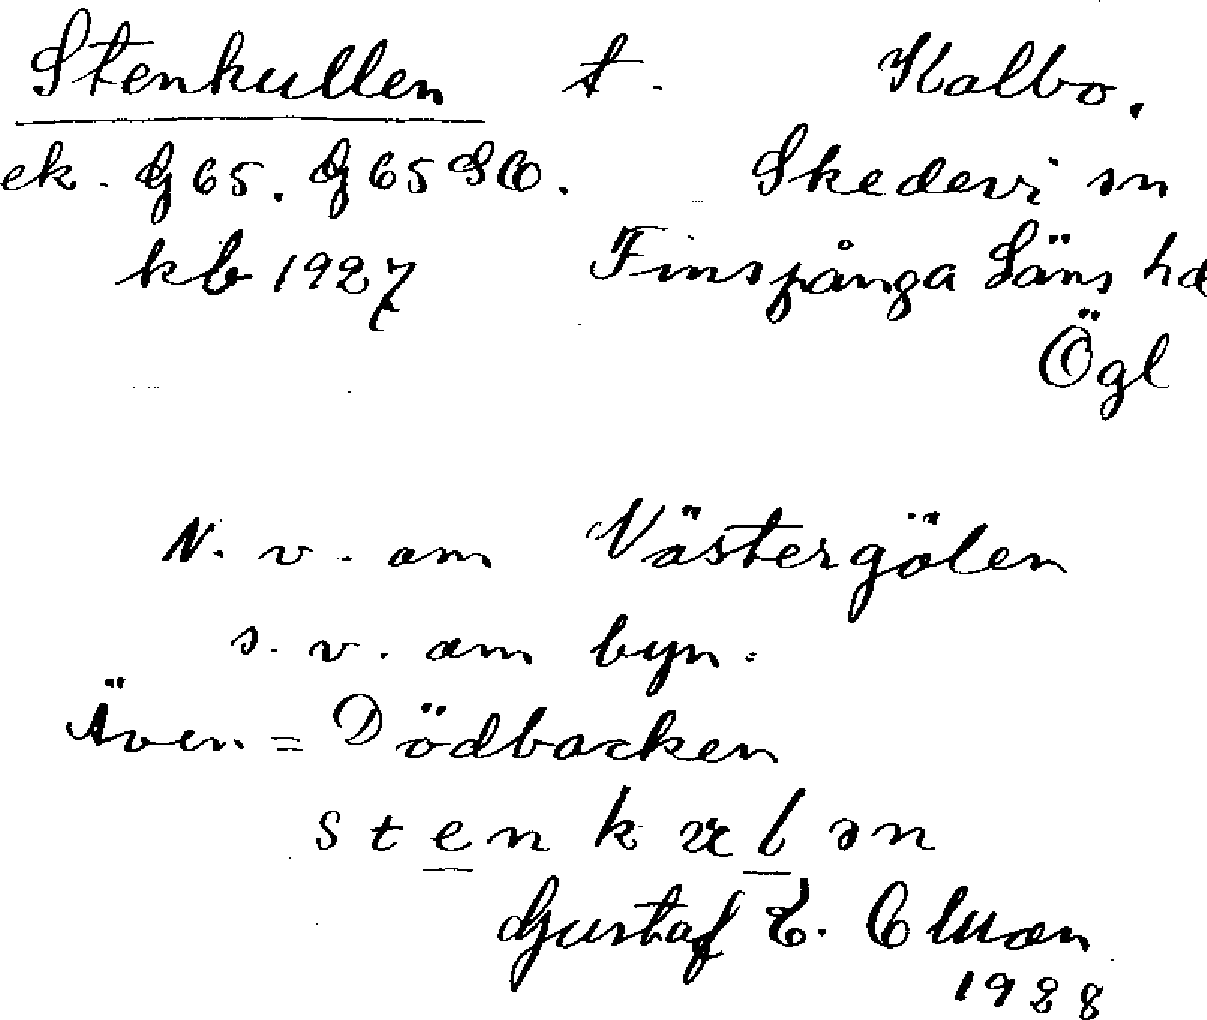 Stenkullen t. Kalbo.
ek. G65. G65 SO. Skedevi sn
kb 1927 Finspånga Läns hd
Ögl
N. v. om Västergölen
s. v. om byn.
Även = Dödbacken
Gustaf E.
1928